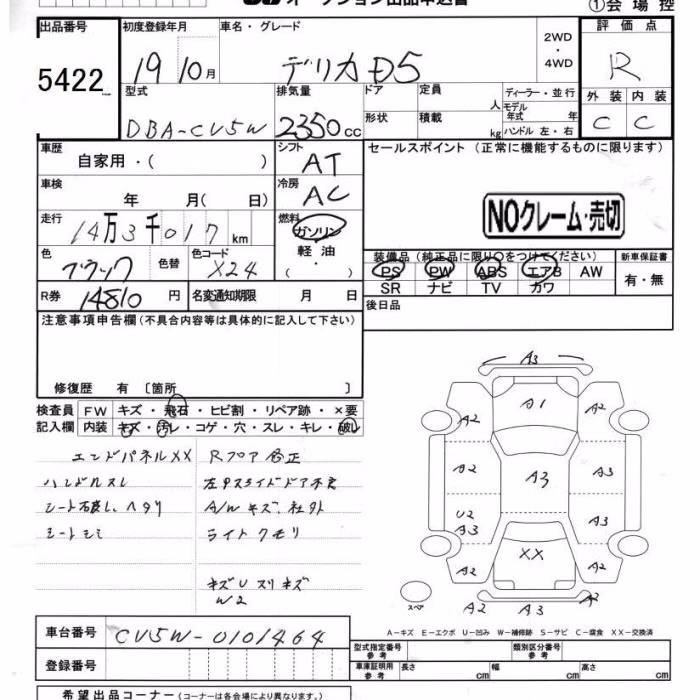 オークション出品申込書
①会場控
出品番号 初度登録年月 車名・グレード 2WD・4WD 評価点
5422 19 10月 デリカD5 R
型式 排気量 ドア 定員 人 ディーラー・並行 外装 内装
DBA-CV5W 2350cc 形状 積載 kg モデル年式 年 ハンドル 左・右 C C
車歴 自家用・( ) シフト AT セールスポイント (正常に機能するものに限ります)
車検 年 月( 日) 冷房 AC
NOクレーム・売切
走行 14万3千017km 燃料 ガソリン 軽油 ( ・ )
色 ブラック 色替 色コード X24
装備品 (純正品に限り○をつけてください) 新車保証書
PS PW ABS エアB AW 有・無
SR ナビ TV カワ
R券 14810円 名変通知期限 月 日
後日品
注意事項申告欄(不具合内容等は具体的に記入して下さい)
修復歴 有 〔箇所 〕
検査員 FW キズ・飛石・ヒビ割・リペア跡・×要
記入欄 内装 キズ・汚レ・コゲ・穴・スレ・キレ・破レ
エンドパネルXX Rフロア修正
ハンドルスレ 左Pスライドドア不良
シート破レ、ヘタリ A/Wキズ、社外
シートシミ ライトクモリ
キズUスリキズ
W2
A3
A2 A1 A2
A2 A3 A3
U2
A3 A3
A2 XX A2
スペア A2 A3 A2
A-キズ E-エクボ U-凹み W-補修跡 S-サビ C-腐食 XX-交換済
車台番号 CV5W-0101464
型式指定番号 参考 類別区分番号 参考
登録番号
車庫証明用 参考 長さ cm 幅 cm 高さ cm
希望出品コーナー (コーナーは各会場により異なります。)